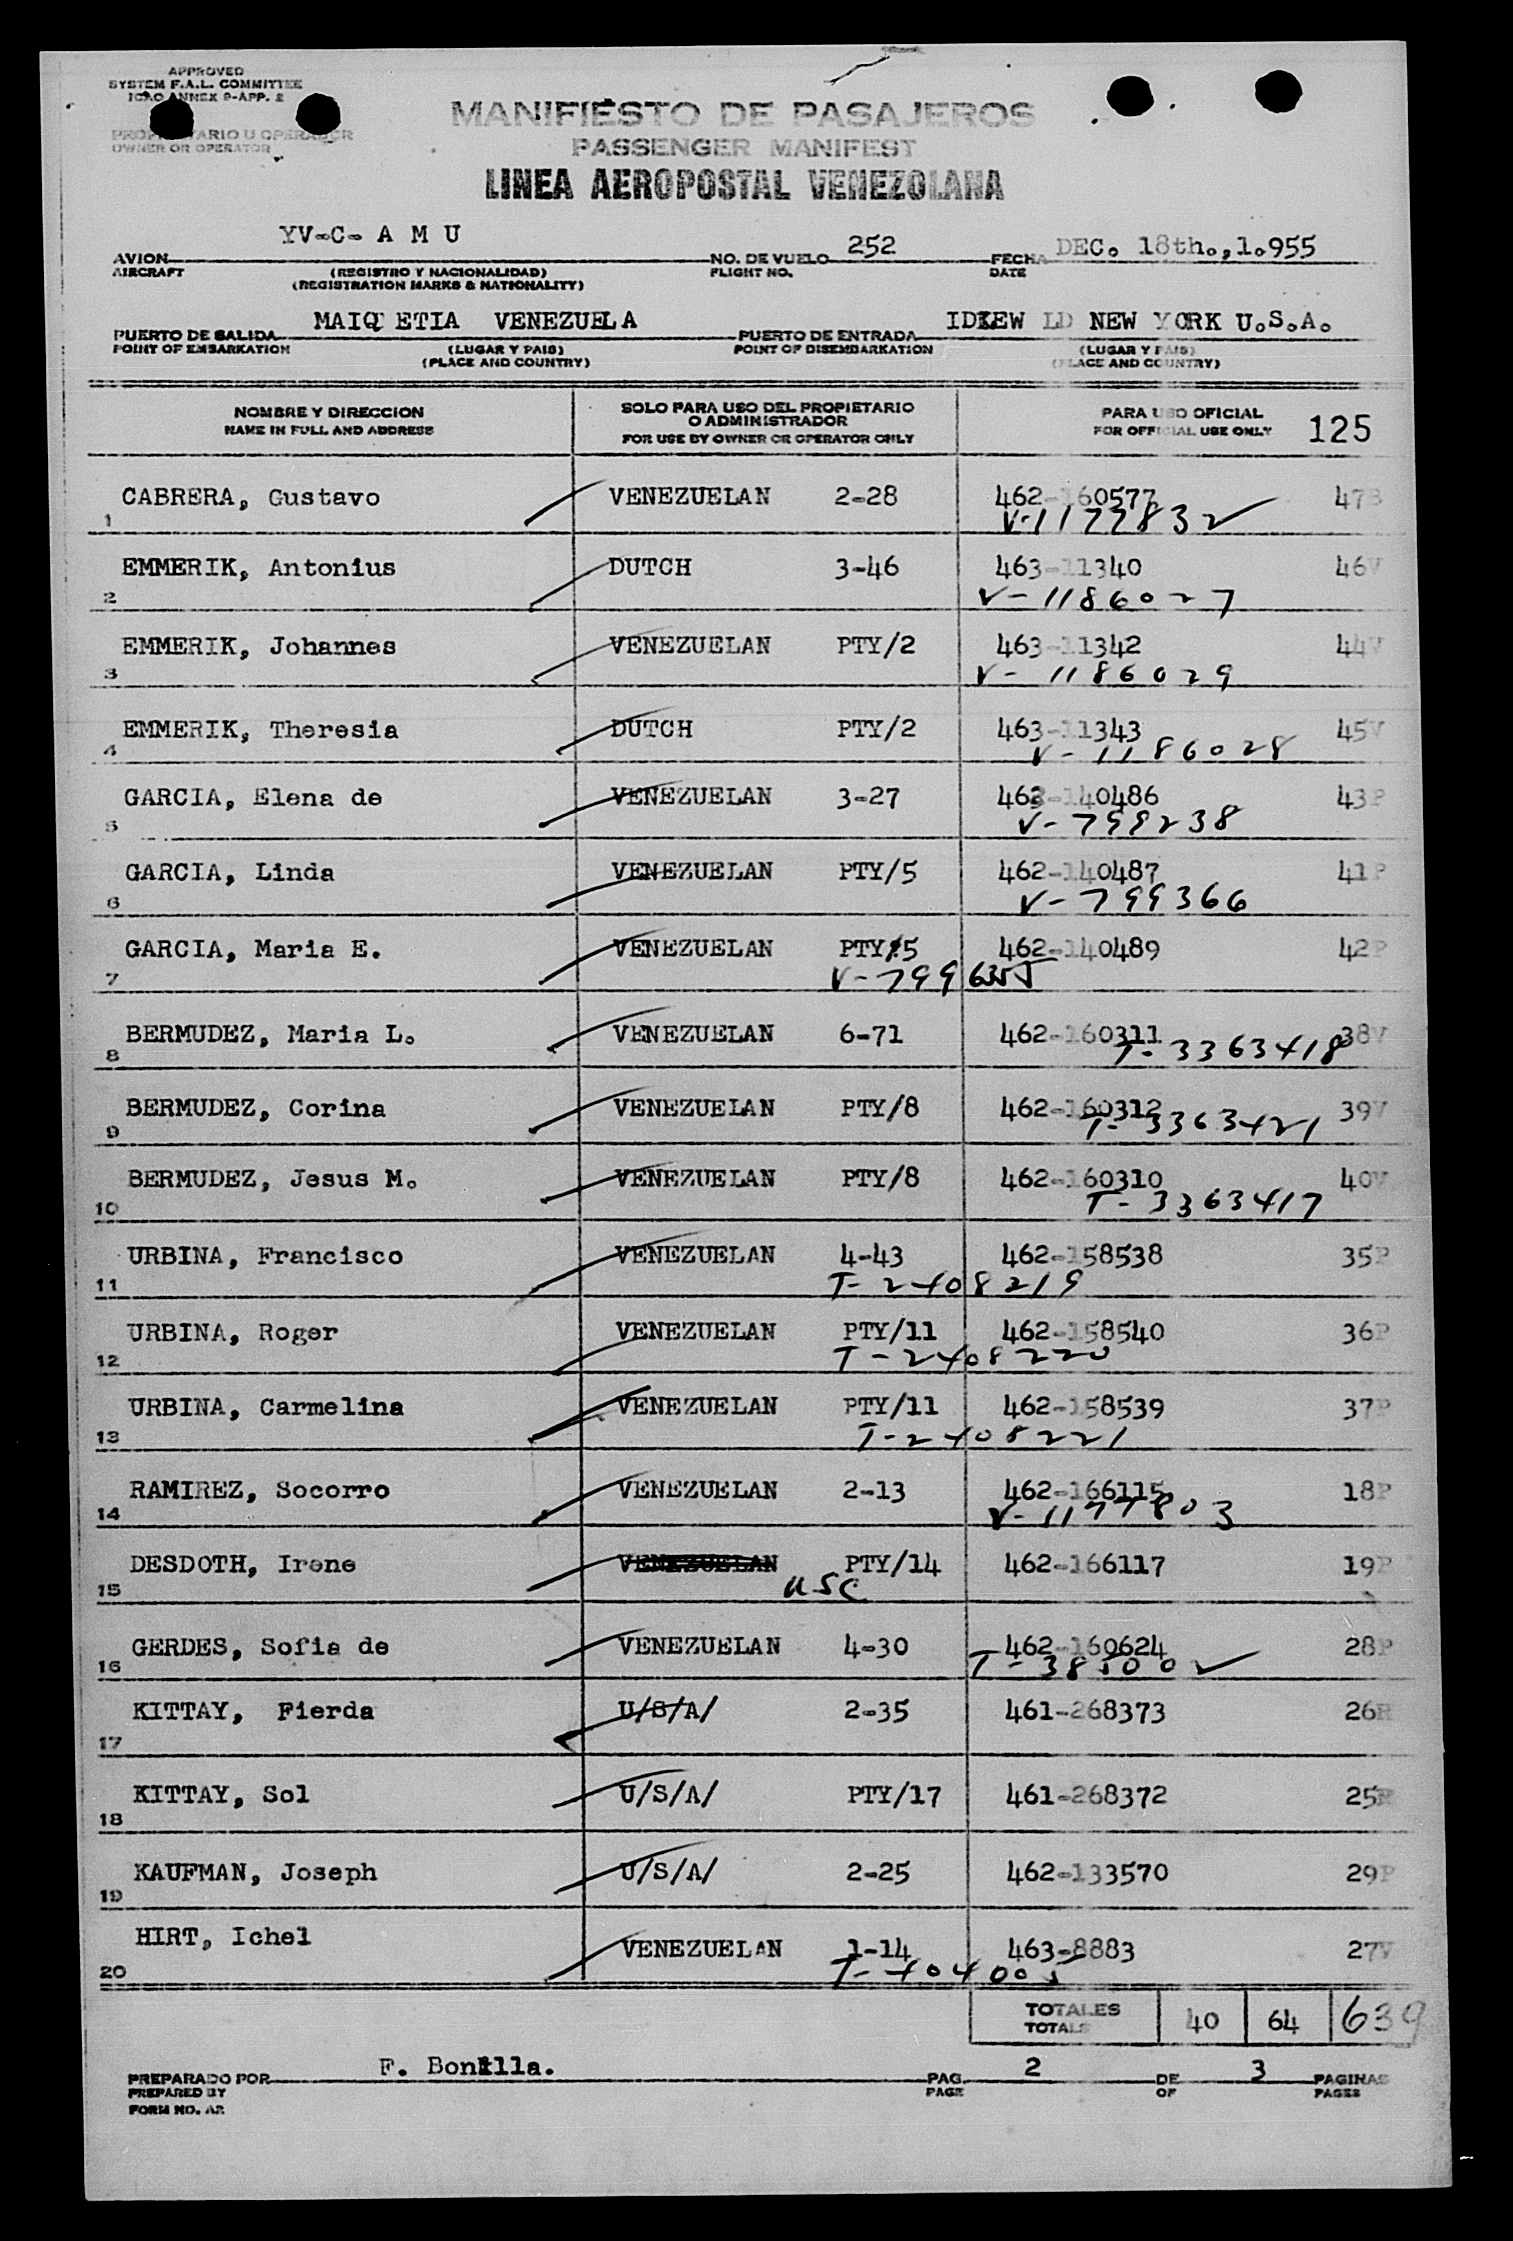 APPROVED
SYSTEM F.A.L. COMMITTEE
ICAO ANNEX 9-APP. 2
PROPIETARIO U OPERADOR
OWNER OR OPERATOR
MANIFIESTO DE PASAJEROS
PASSENGER MANIFEST
LINEA AEROPOSTAL VENEZOLANA
AVION YV-C- A M U NO. DE VUELO 252 FECHA DEC. 18th.,1.955
AIRCRAFT (REGISTRO Y NACIONALIDAD) FLIGHT NO. DATE
(REGISTRATION MARKS & NATIONALITY)
PUERTO DE SALIDA MAIQ ETIA VENEZUELA PUERTO DE ENTRADA IDLEW LD NEW YORK U.S.A.
POINT OF EMBARKATION (LUGAR Y PAIS) POINT OF DISEMBARKATION (LUGAR Y PAIS)
(PLACE AND COUNTRY) (PLACE AND COUNTRY)
NOMBRE Y DIRECCION SOLO PARA USO DEL PROPIETARIO PARA USO OFICIAL
O ADMINISTRADOR
NAME IN FULL AND ADDRESS FOR USE BY OWNER OR OPERATOR ONLY FOR OFFICIAL USE ONLY 125
CABRERA, Gustavo VENEZUELAN 2-28 462-160577 47B
1 V-1177832
EMMERIK, Antonius DUTCH 3-46 463-11340 46V
2 V-1186027
EMMERIK, Johannes VENEZUELAN PTY/2 463-11342 44V
3 V-1186029
EMMERIK, Theresia DUTCH PTY/2 463-11343 45V
4 V-1186028
GARCIA, Elena de VENEZUELAN 3-27 462-140486 43P
5 V-799238
GARCIA, Linda VENEZUELAN PTY/5 462-140487 41P
6 V-799366
GARCIA, Maria E. VENEZUELAN PTY/5 462-140489 42P
7
BERMUDEZ, Maria L. VENEZUELAN 6-71 462-160311 38V
8 T-3363418
BERMUDEZ, Corina VENEZUELAN PTY/8 462-160312 39V
9 T-3363421
BERMUDEZ, Jesus M. VENEZUELAN PTY/8 462-160310 40V
10 T-3363417
URBINA, Francisco VENEZUELAN 4-43 462-158538 35P
11 T-2408219
URBINA, Roger VENEZUELAN PTY/11 462-158540 36P
12 T-2408220
URBINA, Carmelina VENEZUELAN PTY/11 462-158539 37P
13 T-2408221
RAMIREZ, Socorro VENEZUELAN 2-13 462-166115 18P
14 V-1177803
DESDOTH, Irene VENEZUELAN PTY/14 462-166117 19P
15 USC
GERDES, Sofia de VENEZUELAN 4-30 462-160624 28P
16 T-385002
KITTAY, Fierda U/S/A/ 2-35 461-268373 26R
17
KITTAY, Sol U/S/A/ PTY/17 461-268372 25R
18
KAUFMAN, Joseph U/S/A/ 2-25 462-133570 29P
19
HIRT, Ichel VENEZUELAN 1-14 463-8883 27V
20 T-404005
TOTALES 40 64 639
TOTALS
PREPARADO POR F. Bonilla. PAG. 2 DE 3 PAGINAS
PREPARED BY PAGE OF PAGES
FORM NO. AR